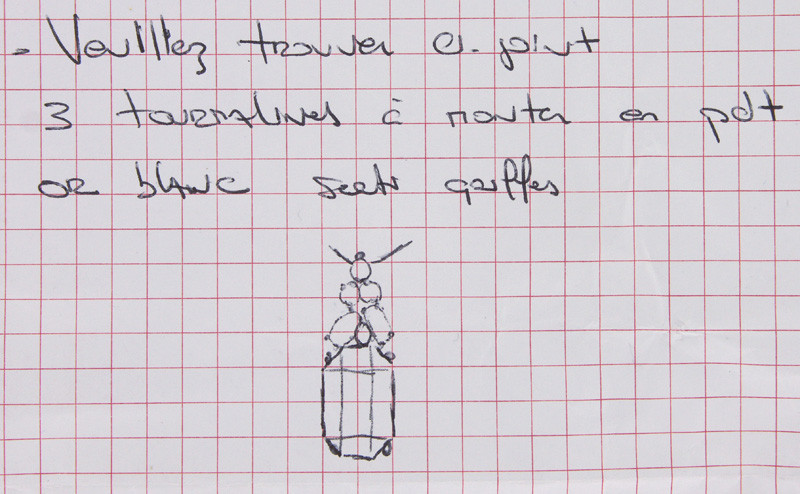 - Veuillez trouver ci-joint
3 tourmalines à monter en pdt
or blanc griffes